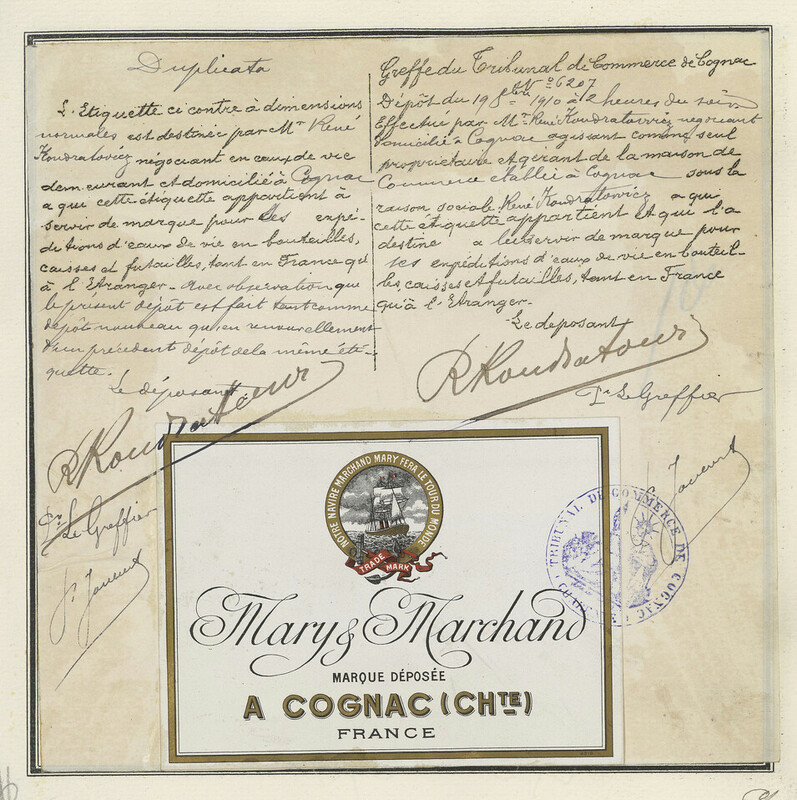 Duplicata
L'Etiquette ci contre à dimensions
normales est destinée par Mr René
Kondratowicz negociant en eaux de vie
demeurant et domicilié à Cognac
a qui cette étiquette appartient à
servir de marque pour les expé-
ditions d'eaux de vie en bouteilles,
caisses et futailles, tant en France qu'
à l'Etranger. Avec observation que
le présent dépôt est fait tant comme
dépôt nouveau qu'en renouvellement
d'un précédent dépôt de la même éti-
quette.
Le déposant
RKondratowicz
Pr Le Greffier
Greffe du Tribunal de Commerce de Cognac
No 6207
Dépôt du 19 8bre 1910 à 2 heures du soir
Effectué par Mr René Kondratowicz negociant
domicilié à Cognac agissant comme seul
propriétaire et gérant de la maison de
Commerce établie à Cognac sous la
raison sociale René Kondratowicz a qui
cette étiquette appartient et qui l'a
destine a leur servir de marque pour
ses expéditions d'eaux de vie en bouteil-
les, caisses et futailles, tant en France
qu'à l'Etranger.
Le deposant
RKondratowicz
Pr Le Greffier
NOTRE NAVIRE MARCHAND MARY FERA LE TOUR DU MONDE
TRADE MARK
Mary & Marchand
MARQUE DÉPOSÉE
A COGNAC (CHTE)
FRANCE
TRIBUNAL DE COMMERCE DE COGNAC